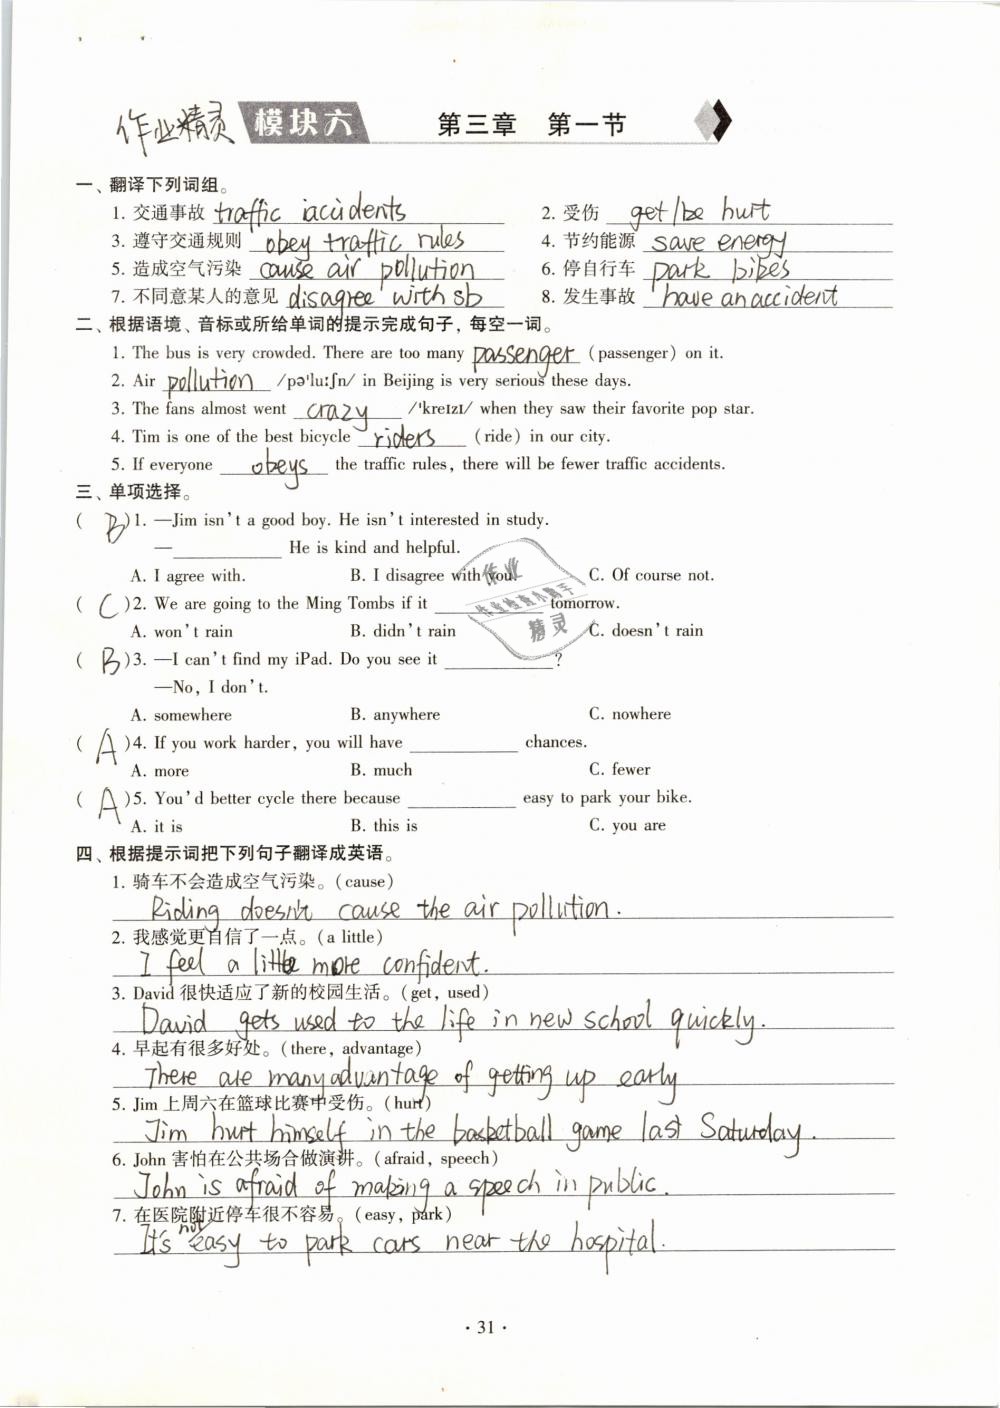 作业精灵 模块六 第三章 第一节
一、翻译下列词组。
1. 交通事故 traffic accidents 2. 受伤 get/be hurt
3. 遵守交通规则 obey traffic rules 4. 节约能源 save energy
5. 造成空气污染 cause air pollution 6. 停自行车 park bikes
7. 不同意某人的意见 disagree with sb 8. 发生事故 have an accident
二、根据语境、音标或所给单词的提示完成句子，每空一词。
1. The bus is very crowded. There are too many passenger (passenger) on it.
2. Air pollution /pə'luːʃn/ in Beijing is very serious these days.
3. The fans almost went crazy /'kreɪzɪ/ when they saw their favorite pop star.
4. Tim is one of the best bicycle riders (ride) in our city.
5. If everyone obeys the traffic rules, there will be fewer traffic accidents.
三、单项选择。
( B )1. —Jim isn't a good boy. He isn't interested in study.
—____________ He is kind and helpful.
A. I agree with. B. I disagree with you. C. Of course not.
( C )2. We are going to the Ming Tombs if it ____________ tomorrow.
A. won't rain B. didn't rain C. doesn't rain
( B )3. —I can't find my iPad. Do you see it ____________?
—No, I don't.
A. somewhere B. anywhere C. nowhere
( A )4. If you work harder, you will have ____________ chances.
A. more B. much C. fewer
( A )5. You'd better cycle there because ____________ easy to park your bike.
A. it is B. this is C. you are
四、根据提示词把下列句子翻译成英语。
1. 骑车不会造成空气污染。(cause)
Riding doesn't cause the air pollution.
2. 我感觉更自信了一点。(a little)
I feel a little more confident.
3. David 很快适应了新的校园生活。(get, used)
David gets used to the life in new school quickly.
4. 早起有很多好处。(there, advantage)
There are many advantage of getting up early
5. Jim 上周六在篮球比赛中受伤。(hurt)
Jim hurt himself in the basketball game last Saturday.
6. John 害怕在公共场合做演讲。(afraid, speech)
John is afraid of making a speech in public.
7. 在医院附近停车很不容易。(easy, park)
It's not easy to park cars near the hospital.
· 31 ·
作业
作业检查小助手
精灵